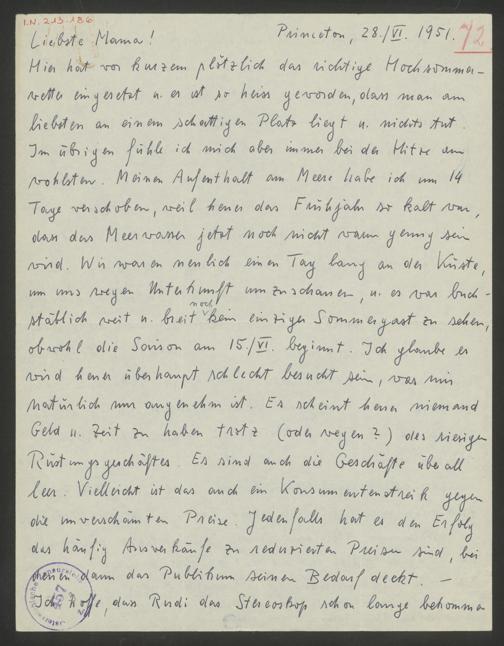 I.N. 213.186
Princeton, 28./VI. 1951.
72
Liebste Mama!
Hier hat vor kurzem plötzlich das richtige Hochsommer-
wetter eingesetzt u. es ist so heiss geworden, dass man am
liebsten an einem schattigen Platz liegt u. nichts tut.
Im übrigen fühle ich mich aber immer bei der Hitze am
wohlsten. Meinen Aufenthalt am Meere habe ich um 14
Tage verschoben, weil heuer das Frühjahr so kalt war,
dass das Meerwasser jetzt noch nicht warm genug sein
wird. Wir waren neulich einen Tag lang an der Küste,
um uns wegen Unterkunft umzuschauen, u. es war buch-
stäblich weit u. breit noch kein einziger Sommergast zu sehen,
obwohl die Saison am 15./VI. beginnt. Ich glaube es
wird heuer überhaupt schlecht besucht sein, was mir
natürlich nur angenehm ist. Es scheint heuer niemand
Geld u. Zeit zu haben trotz (oder wegen?) des riesigen
Rüstungsgeschäftes. Es sind auch die Geschäfte überall
leer. Vielleicht ist das auch ein Konsumentenstreik gegen
die unverschämten Preise. Jedenfalls hat es den Erfolg
das häufig Ausverkäufe zu reduzierten Preisen sind, bei
denen dann das Publikum seinen Bedarf deckt. –
Ich hoffe, dass Rudi das Stereoskop schon lange bekommen